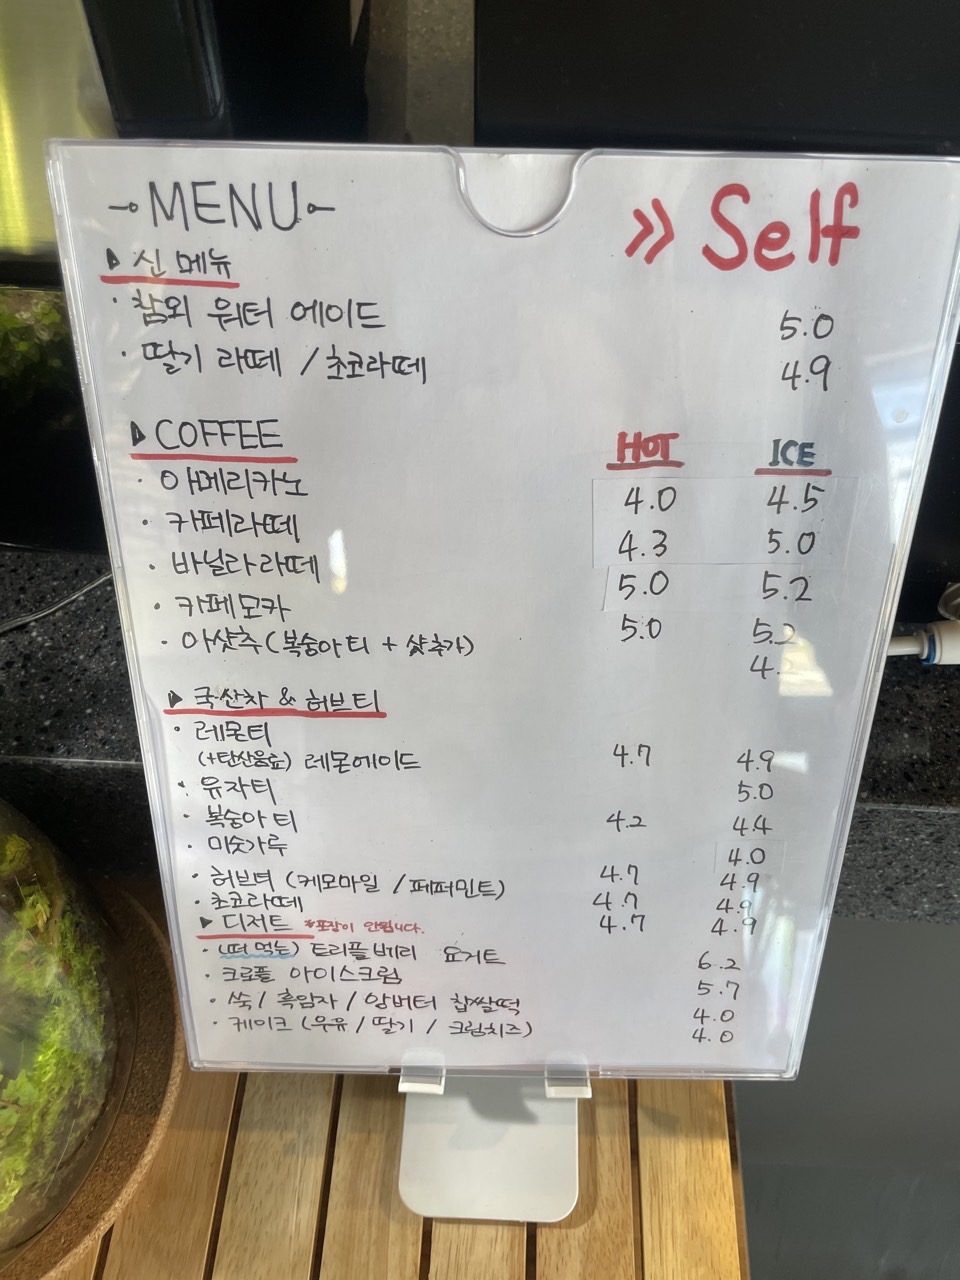 MENU
» Self
▶ 신메뉴
· 참외 워터 에이드 5.0
· 딸기 라떼 / 초코라떼 4.9
▶ COFFEE HOT ICE
· 아메리카노 4.0 4.5
· 카페라떼 4.3 5.0
· 바닐라라떼 5.0 5.2
· 카페모카 5.0 5.2
· 아샷추 (복숭아티 + 샷추가) 4.
▶ 국산차 & 허브티
· 레몬티 4.7 4.9
(+탄산음료) 레몬에이드 5.0
· 유자티 4.2 4.4
· 복숭아티 4.0
· 미숫가루 4.7 4.9
· 허브티 (케모마일 / 페퍼민트) 4.7 4.9
· 초코라떼 4.7 4.9
▶ 디저트 *포장이 안됩니다.
· (떠 먹는) 트리플베리 요거트 6.2
· 크로플 아이스크림 5.7
· 쑥 / 흑임자 / 앙버터 찹쌀떡 4.0
· 케이크 (우유 / 딸기 / 크림치즈) 4.0